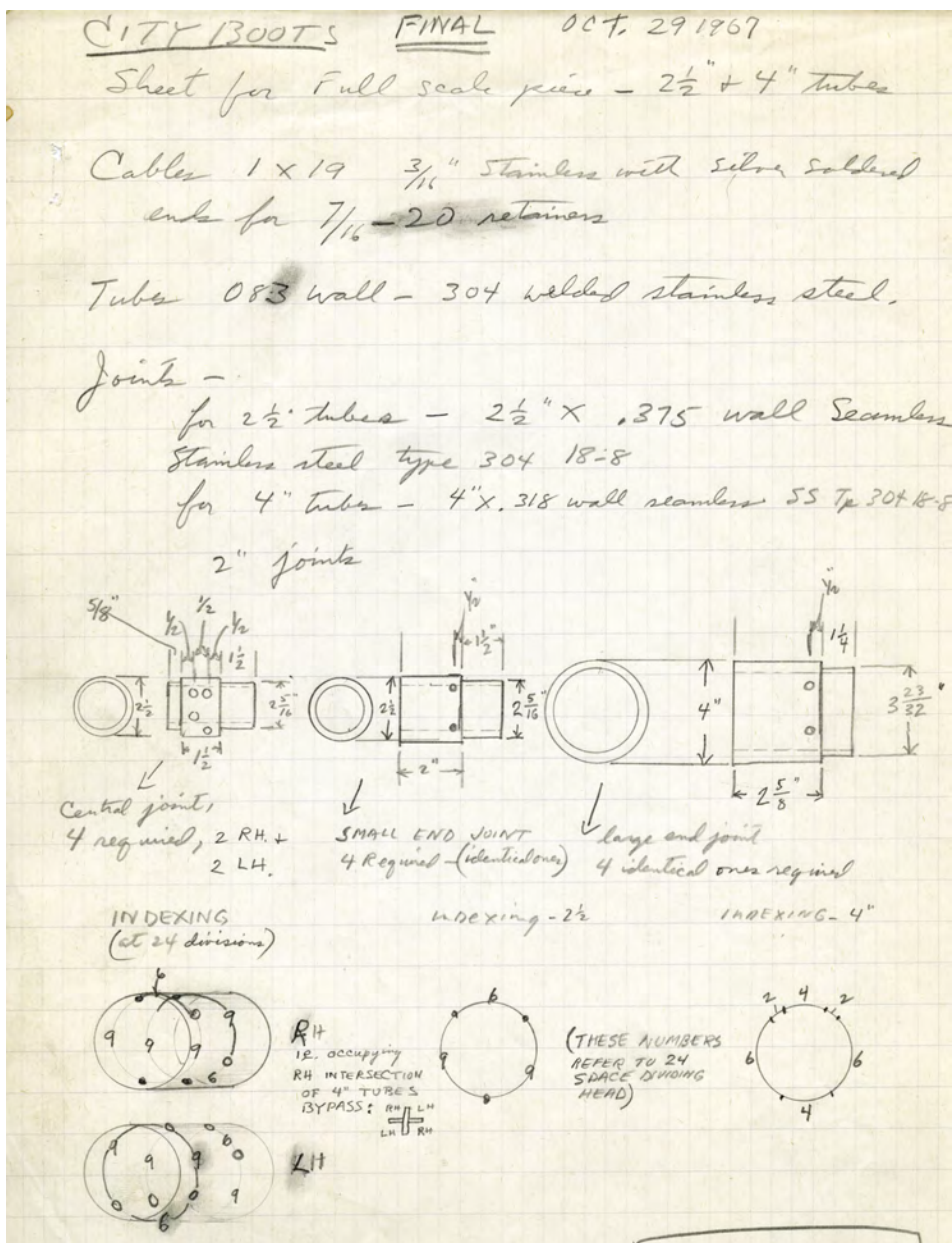 CITY BOOTS FINAL OCT. 29 1967
Sheet for Full scale piece - 2 1/2" + 4" tubes
Cables 1 X 19 3/16" Stainless with silver soldered
ends for 7/16 - 20 retainers
Tubes 083 wall - 304 welded stainless steel.
Joints -
for 2 1/2" tubes - 2 1/2" X .375 wall Seamless
Stainless steel type 304 18-8
for 4" tubes - 4" X .318 wall seamless SS Tp 304 18-8
2" joints
5/8" 1/2 1/2 1/2 1 1/2
2 1/2 2 5/16"
1 1/2
1/2" 1 1/2"
2 1/2 2 5/16"
2"
1/2" 1 1/4
4" 3 23/32"
2 5/8"
Central joint,
4 required, 2 RH. +
2 LH.
SMALL END JOINT
4 Required - (identical ones)
large end joint
4 identical ones required
INDEXING
(at 24 divisions)
INDEXING - 2 1/2
INDEXING - 4"
6
9 9 9 9
6
RH
I.E. occupying
RH INTERSECTION
OF 4" TUBES
BYPASS: RH LH
LH RH
6
9 9
(THESE NUMBERS
REFER TO 24
SPACE DIVIDING
HEAD)
2 4 2
6 6
4
6
9 9 9 9
6
LH